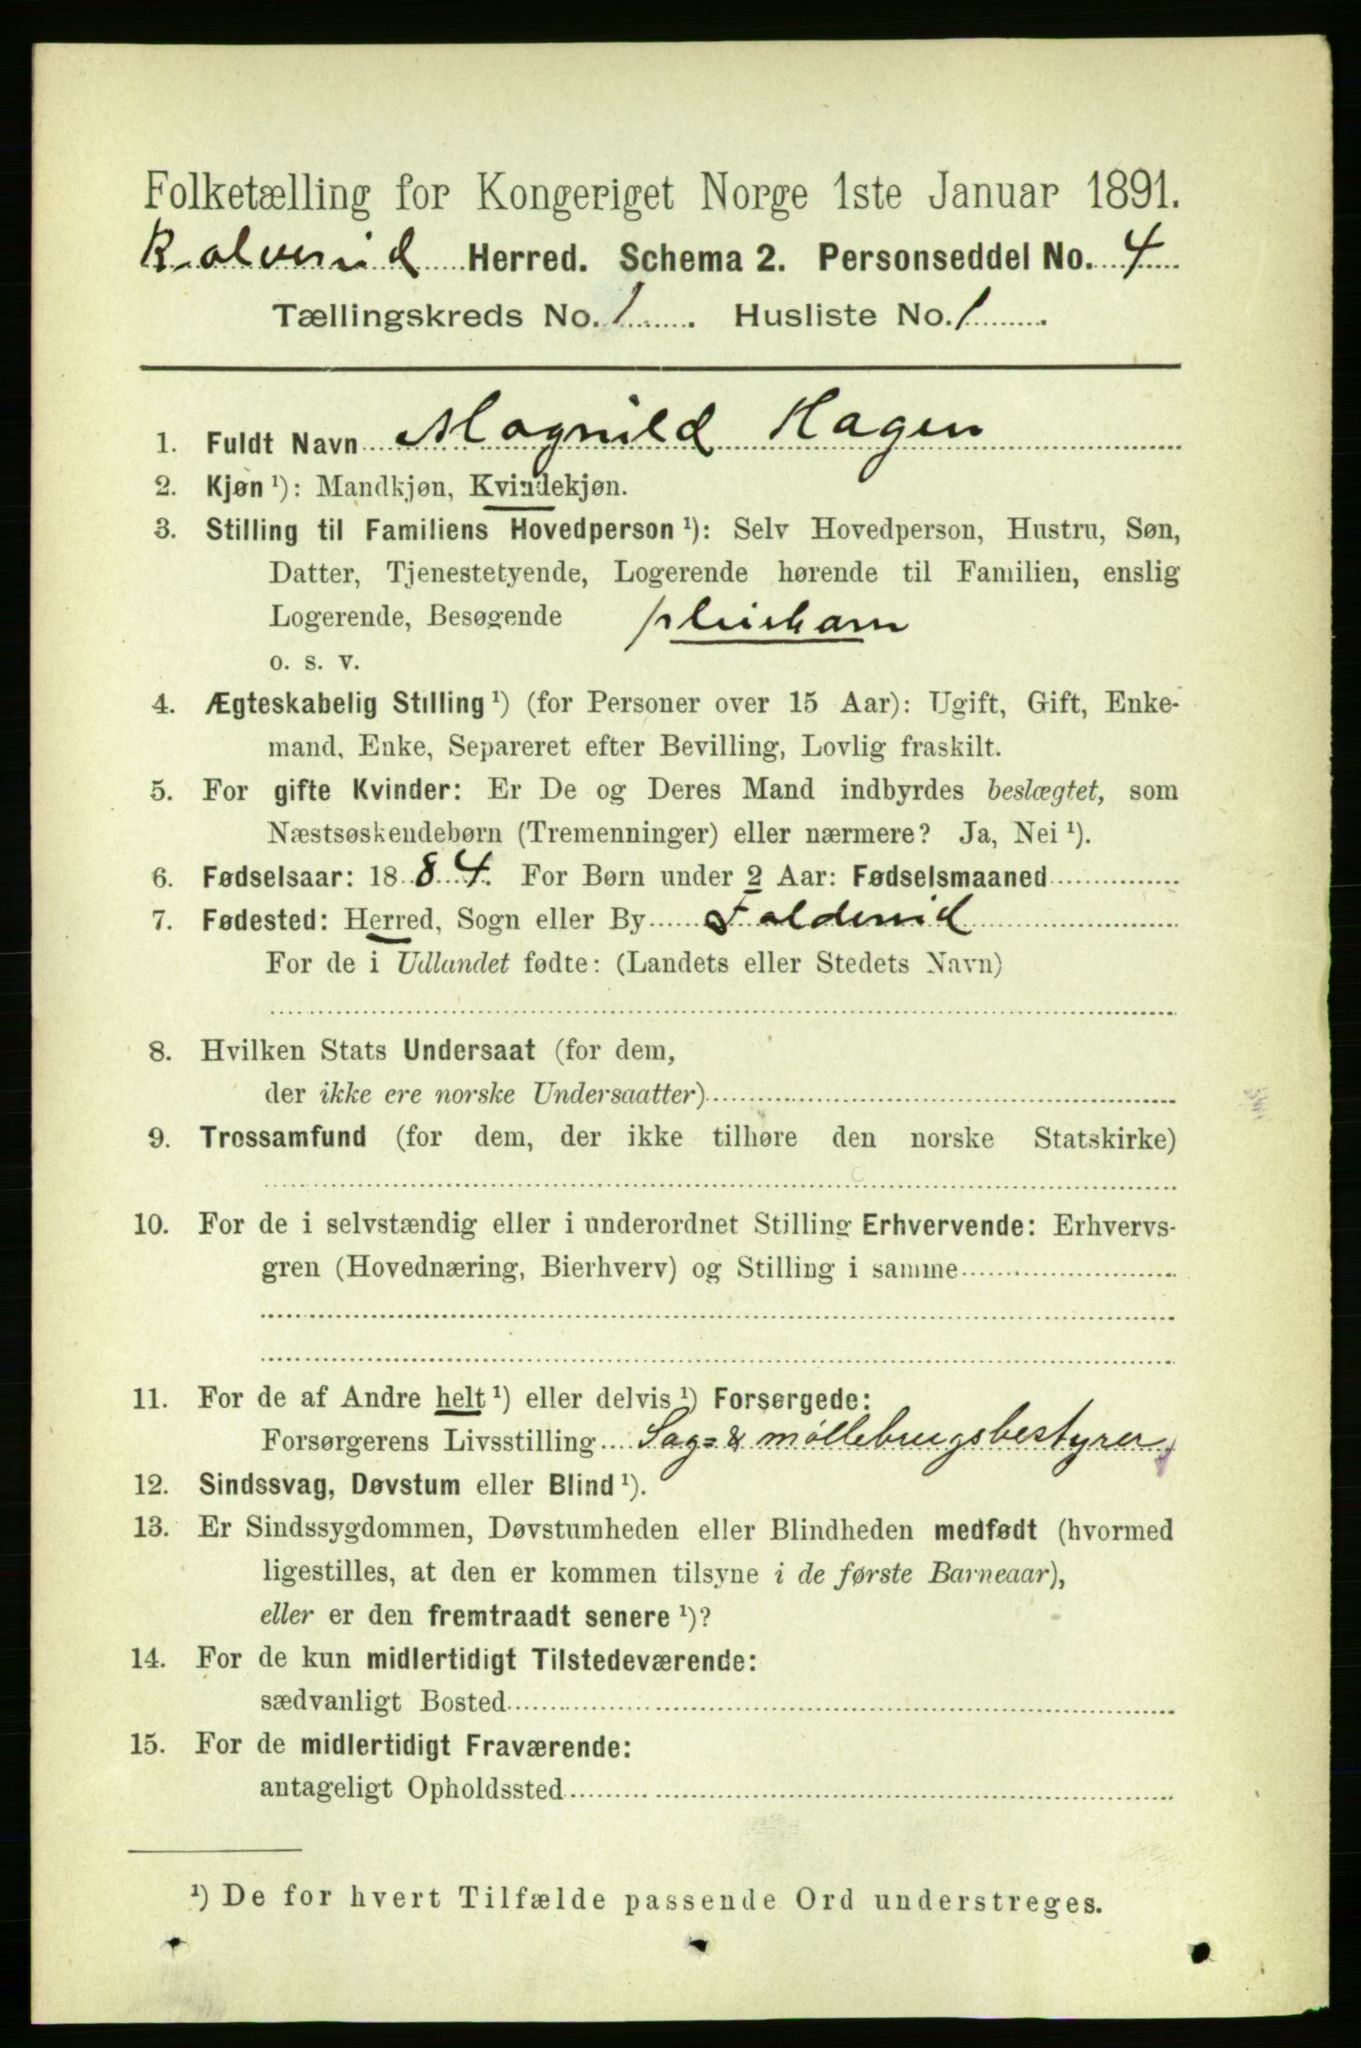 Folketælling for Kongeriget Norge 1ste Januar 1891.
Kolvereid Herred. Schema 2. Personseddel No. 4
Tællingskreds No. 1. Husliste No. 1.
1. Fuldt Navn Magnild Hagen
2. Kjøn ¹): Mandkjøn, Kvindekjøn.
3. Stilling til Familiens Hovedperson ¹): Selv Hovedperson, Hustru, Søn,
Datter, Tjenestetyende, Logerende hørende til Familien, enslig
Logerende, Besøgende pleiebarn
o. s. v.
4. Ægteskabelig Stilling ¹) (for Personer over 15 Aar): Ugift, Gift, Enke-
mand, Enke, Separeret efter Bevilling, Lovlig fraskilt.
5. For gifte Kvinder: Er De og Deres Mand indbyrdes beslægtet, som
Næstsøskendebørn (Tremenninger) eller nærmere? Ja, Nei ¹).
6. Fødselsaar: 1884. For Børn under 2 Aar: Fødselsmaaned
7. Fødested: Herred, Sogn eller By Foldereid
For de i Udlandet fødte: (Landets eller Stedets Navn)
8. Hvilken Stats Undersaat (for dem,
der ikke ere norske Undersaatter)
9. Trossamfund (for dem, der ikke tilhøre den norske Statskirke)
10. For de i selvstændig eller i underordnet Stilling Erhvervende: Erhvervs-
gren (Hovednæring, Bierhverv) og Stilling i samme
11. For de af Andre helt ¹) eller delvis ¹) Forsørgede:
Forsørgerens Livsstilling Sag= & møllebrugsbestyrer
12. Sindssvag, Døvstum eller Blind ¹).
13. Er Sindssygdommen, Døvstumheden eller Blindheden medfødt (hvormed
ligestilles, at den er kommen tilsyne i de første Barneaar),
eller er den fremtraadt senere ¹)?
14. For de kun midlertidigt Tilstedeværende:
sædvanligt Bosted
15. For de midlertidigt Fraværende:
antageligt Opholdssted
¹) De for hvert Tilfælde passende Ord understreges.